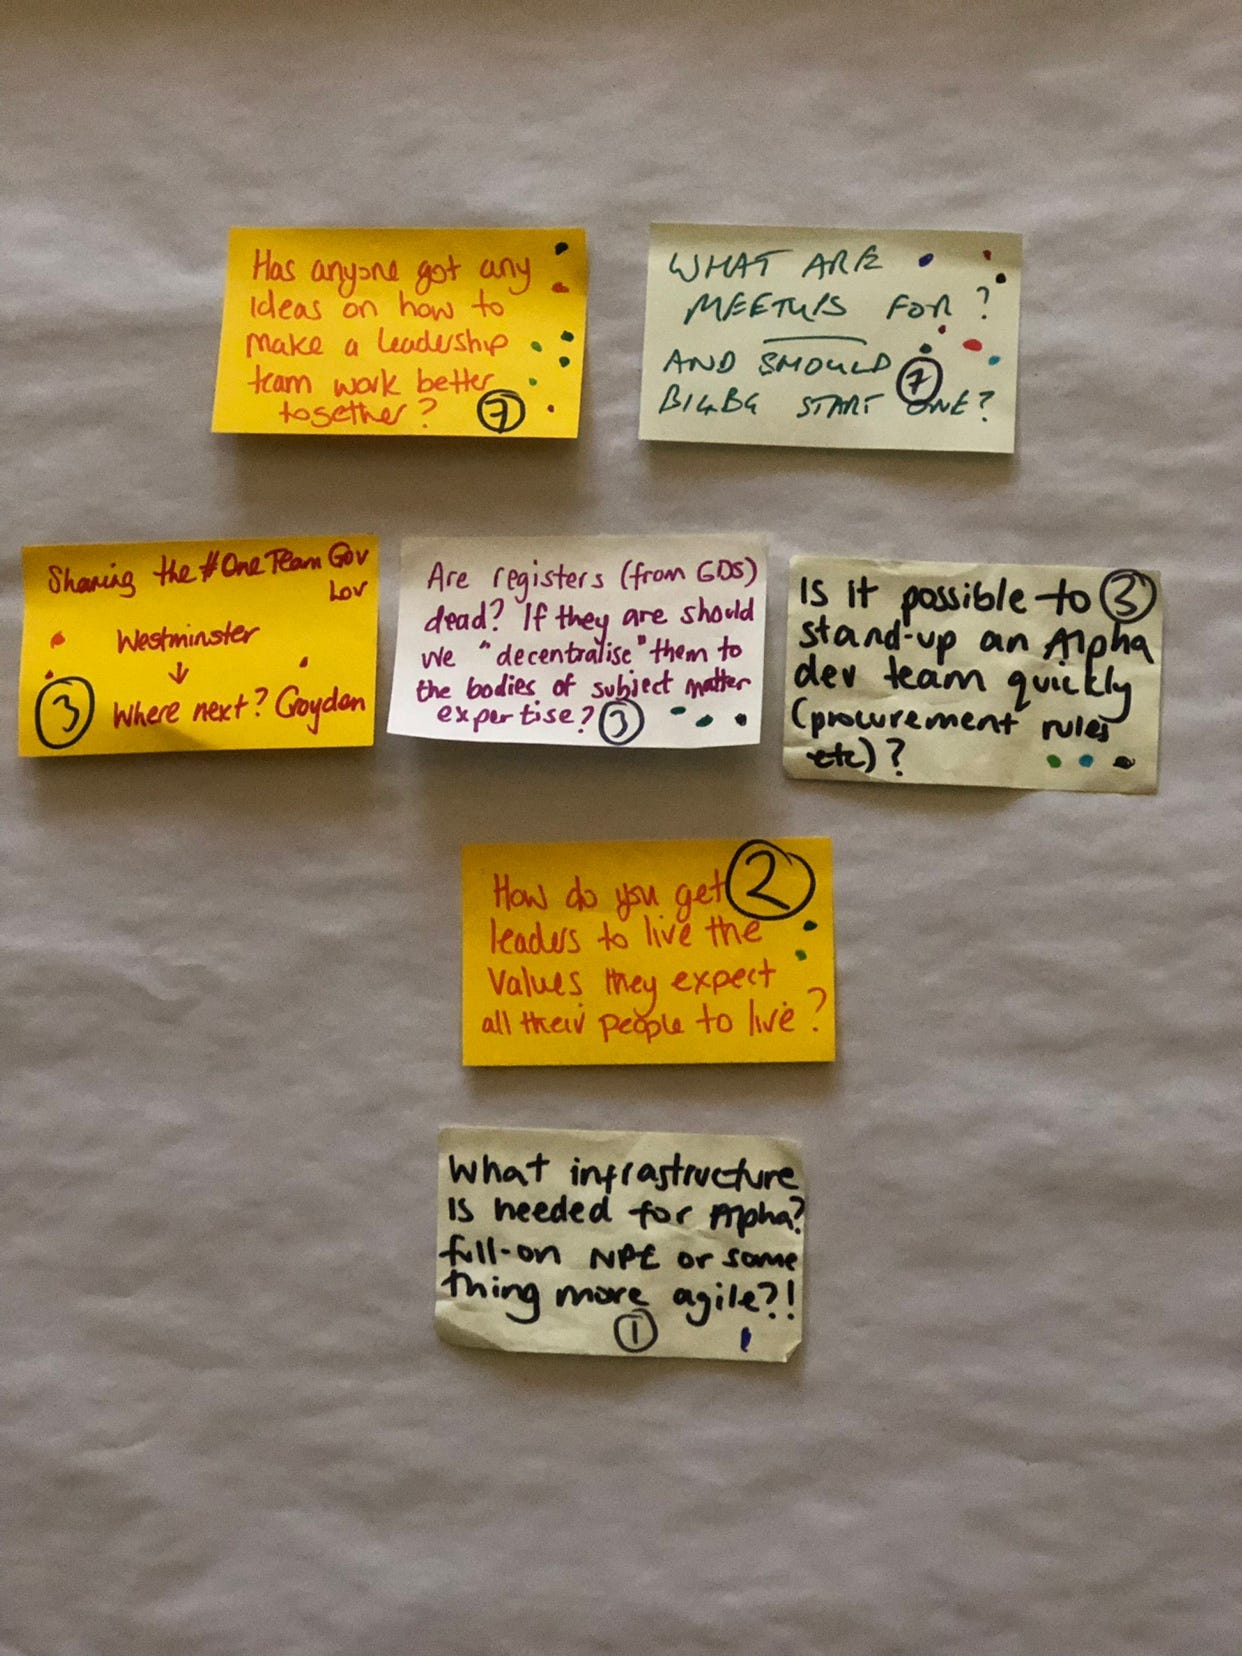 Has anyone got any
ideas on how to
make a leadership
team work better
together? 7
WHAT ARE
MEETUPS FOR?
AND SHOULD 7
START ONE?
Sharing the #OneTeamGov
Lov
Westminster
↓
3 Where next? Croydon
Are registers (from GDS)
dead? If they are should
we "decentralise" them to
the bodies of subject matter
expertise? 3
Is it possible to 3
stand-up an Alpha
dev team quickly
(procurement rules
etc)?
How do you get 2
leaders to live the
values they expect
all their people to live?
What infrastructure
is needed for Alpha?
full-on NPE or some
thing more agile?!
1